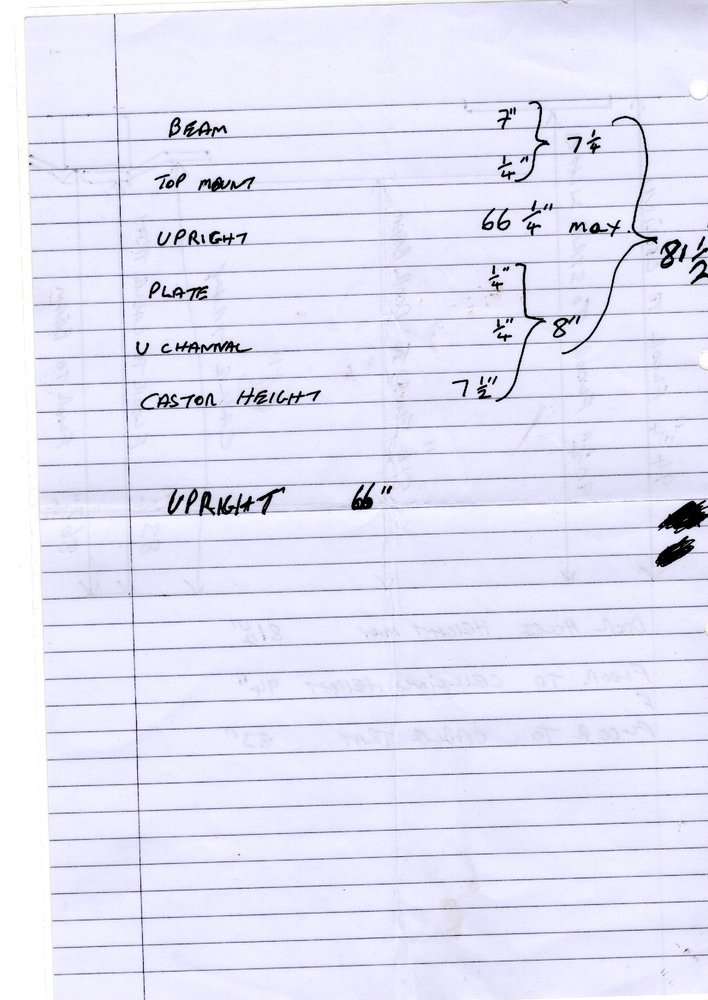 BEAM 7" 7 1/4
TOP MOUNT 1/4"
UPRIGHT 66 1/4" max. 81 1/2
PLATE 1/4"
U CHANNAL 1/4" 8"
CASTOR HEIGHT 7 1/2"
UPRIGHT 66"